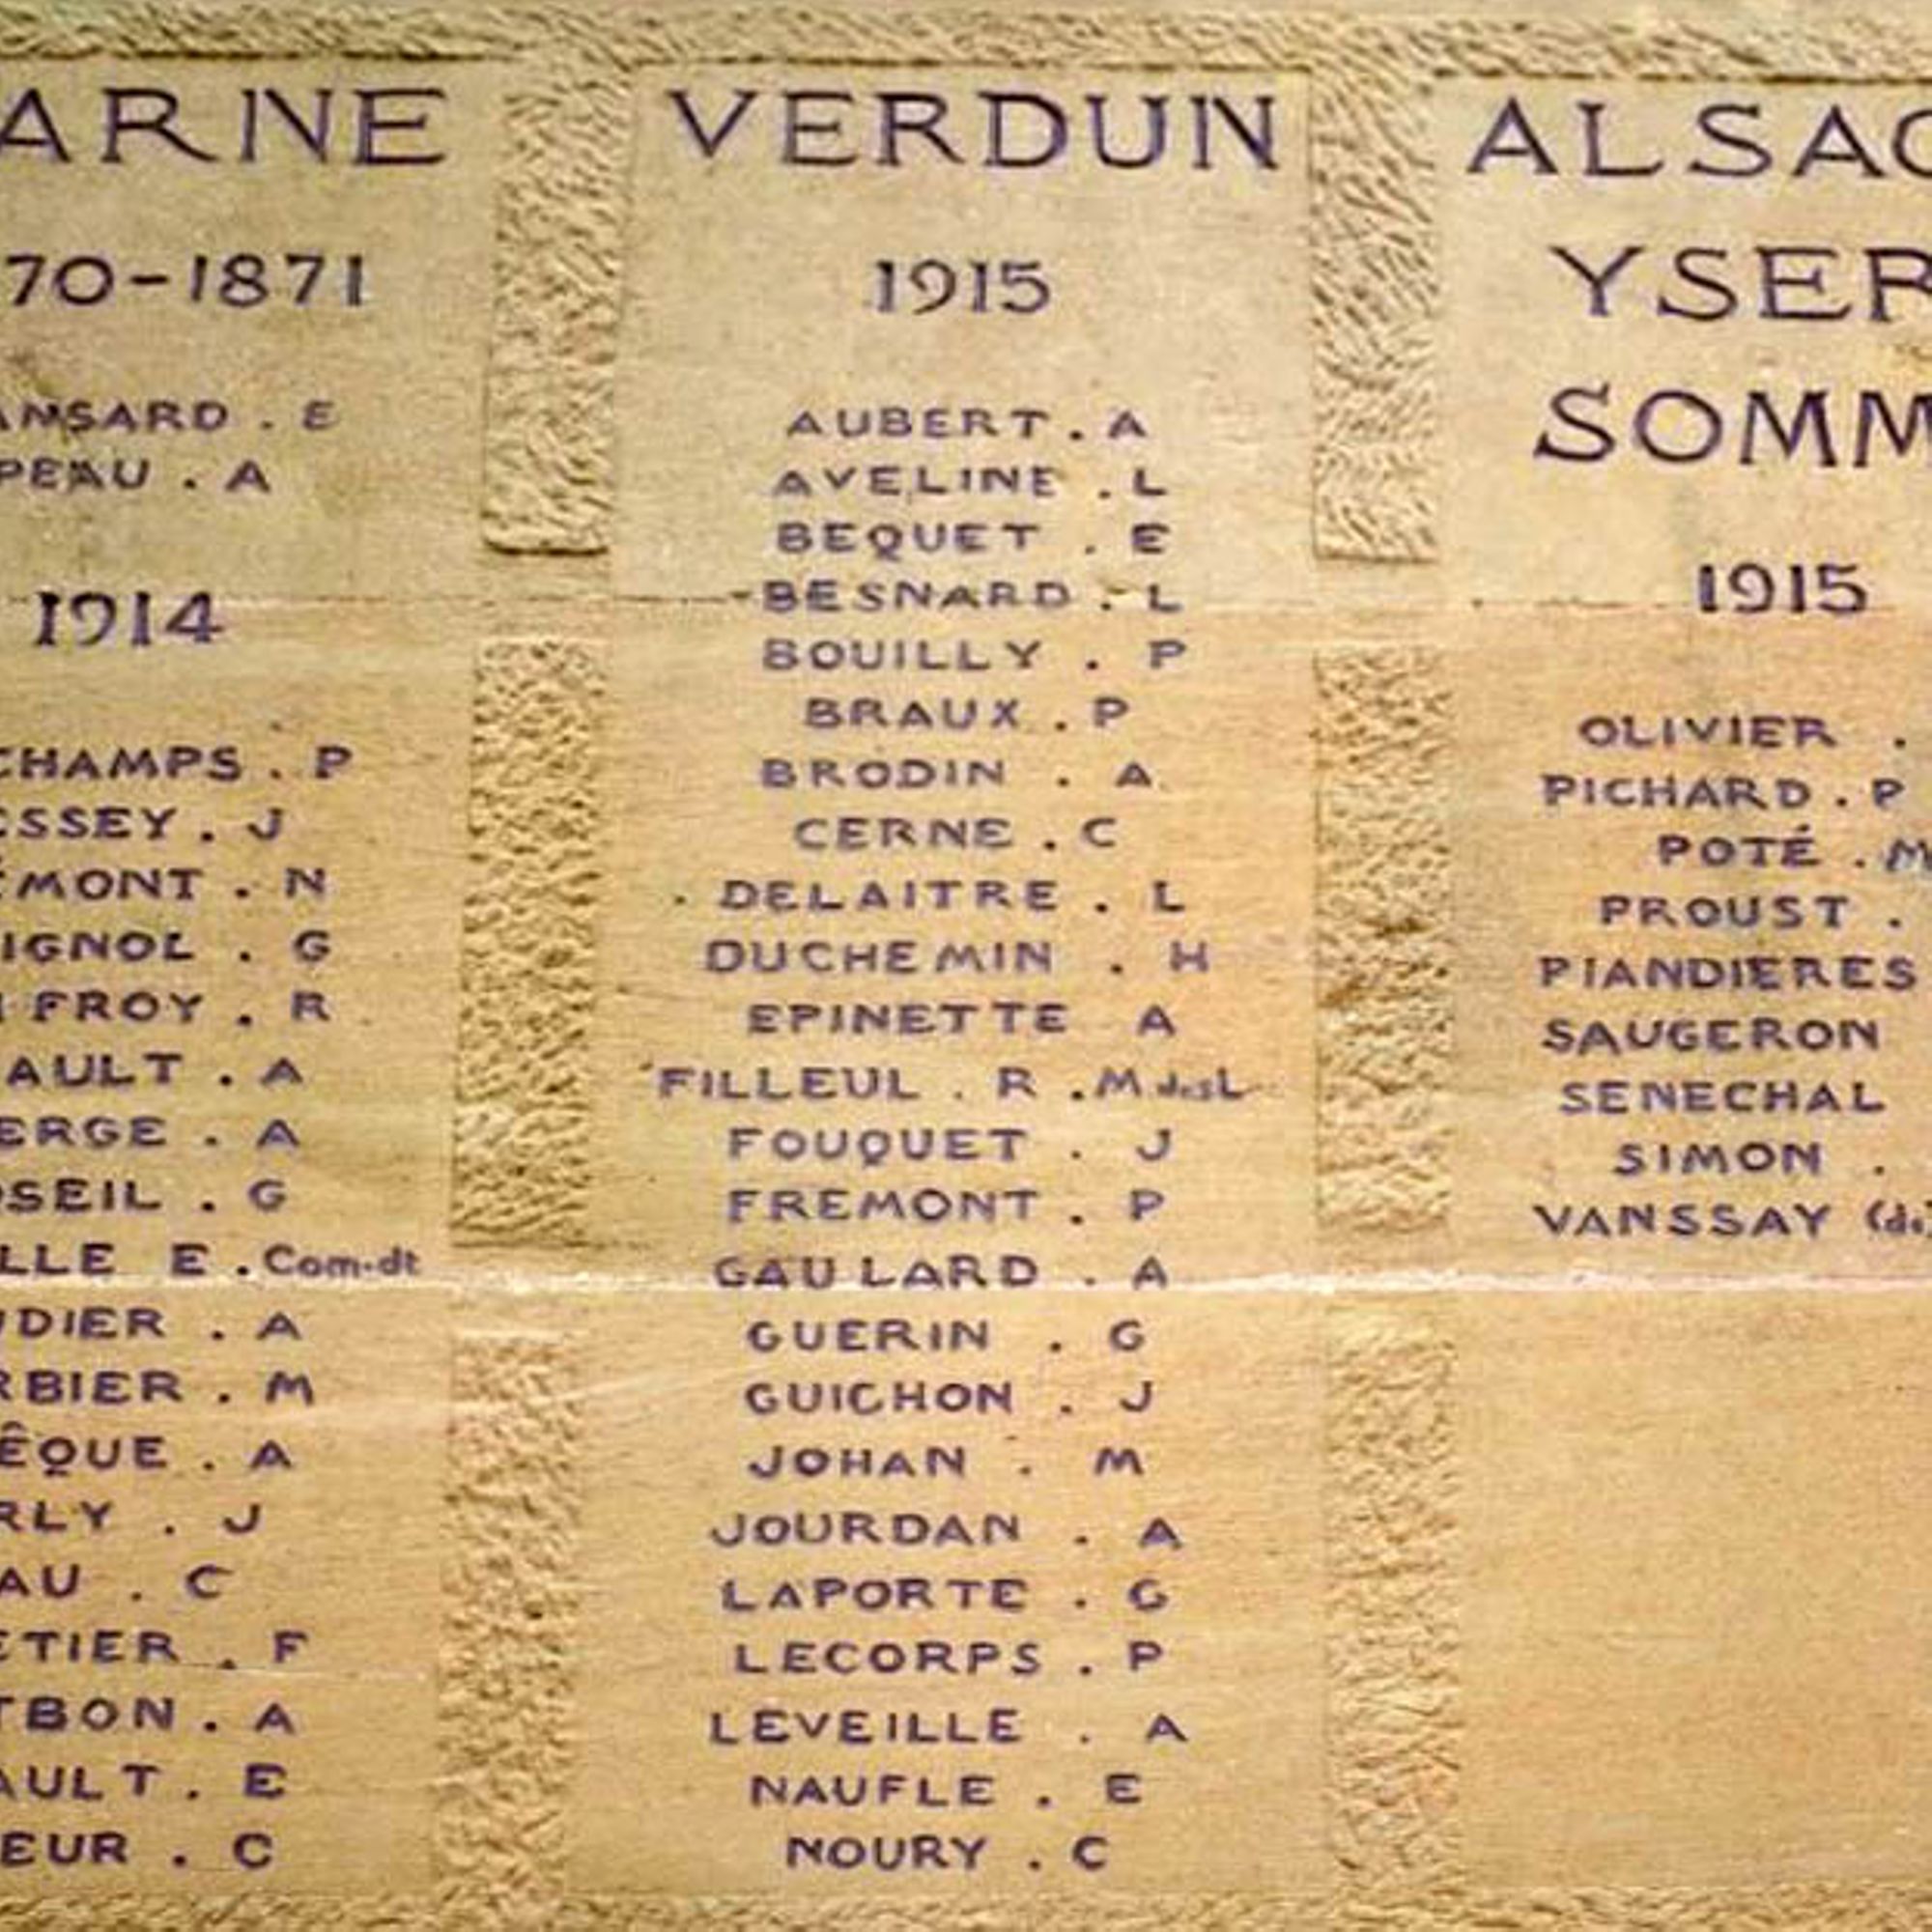 ARNE
70-1871
ANSARD . E
PEAU . A
1914
CHAMPS . P
ESSEY . J
ÉMONT . N
IGNOL . G
FROY . R
AULT . A
ERGE . A
OSEIL . G
LLE E . Com.dt
DIER . A
RBIER . M
ÊQUE . A
RLY . J
AU . C
ETIER . F
TBON . A
AULT . E
EUR . C
VERDUN
1915
AUBERT . A
AVELINE . L
BEQUET . E
BESNARD . L
BOUILLY . P
BRAUX . P
BRODIN . A
CERNE . C
DELAITRE . L
DUCHEMIN . H
EPINETTE A
FILLEUL . R . M desL
FOUQUET . J
FREMONT . P
GAULARD . A
GUERIN . G
GUICHON . J
JOHAN . M
JOURDAN . A
LAPORTE . G
LECORPS . P
LEVEILLE . A
NAUFLE . E
NOURY . C
ALSAC
YSER
SOMM
1915
OLIVIER .
PICHARD . P
POTÉ . M
PROUST .
PIANDIERES
SAUGERON
SENECHAL
SIMON .
VANSSAY (de)